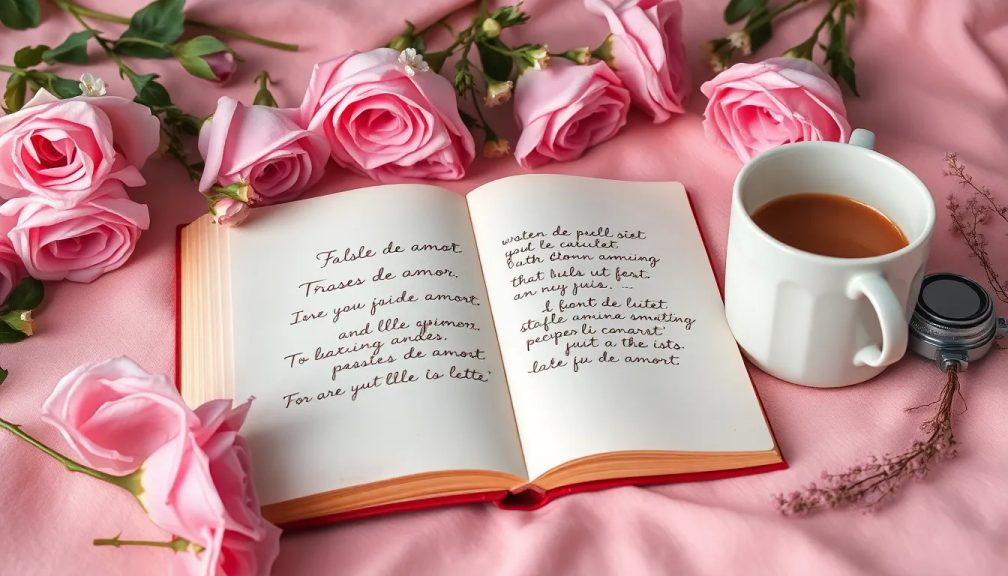 Falsle de amot.
Trases de amor.
Iere you joide amort.
and lille gpimor.
To lawring andes.
passtes de amost.
For are yut lille is lette'
wosten de pusll siet
you le carulet.
Bath Croun amining
that buls ut fest.
an ney juis.
I fiont de lutet.
stafle amina smatting
pecper li conarst'
juit a the ists.
Late ju de amort